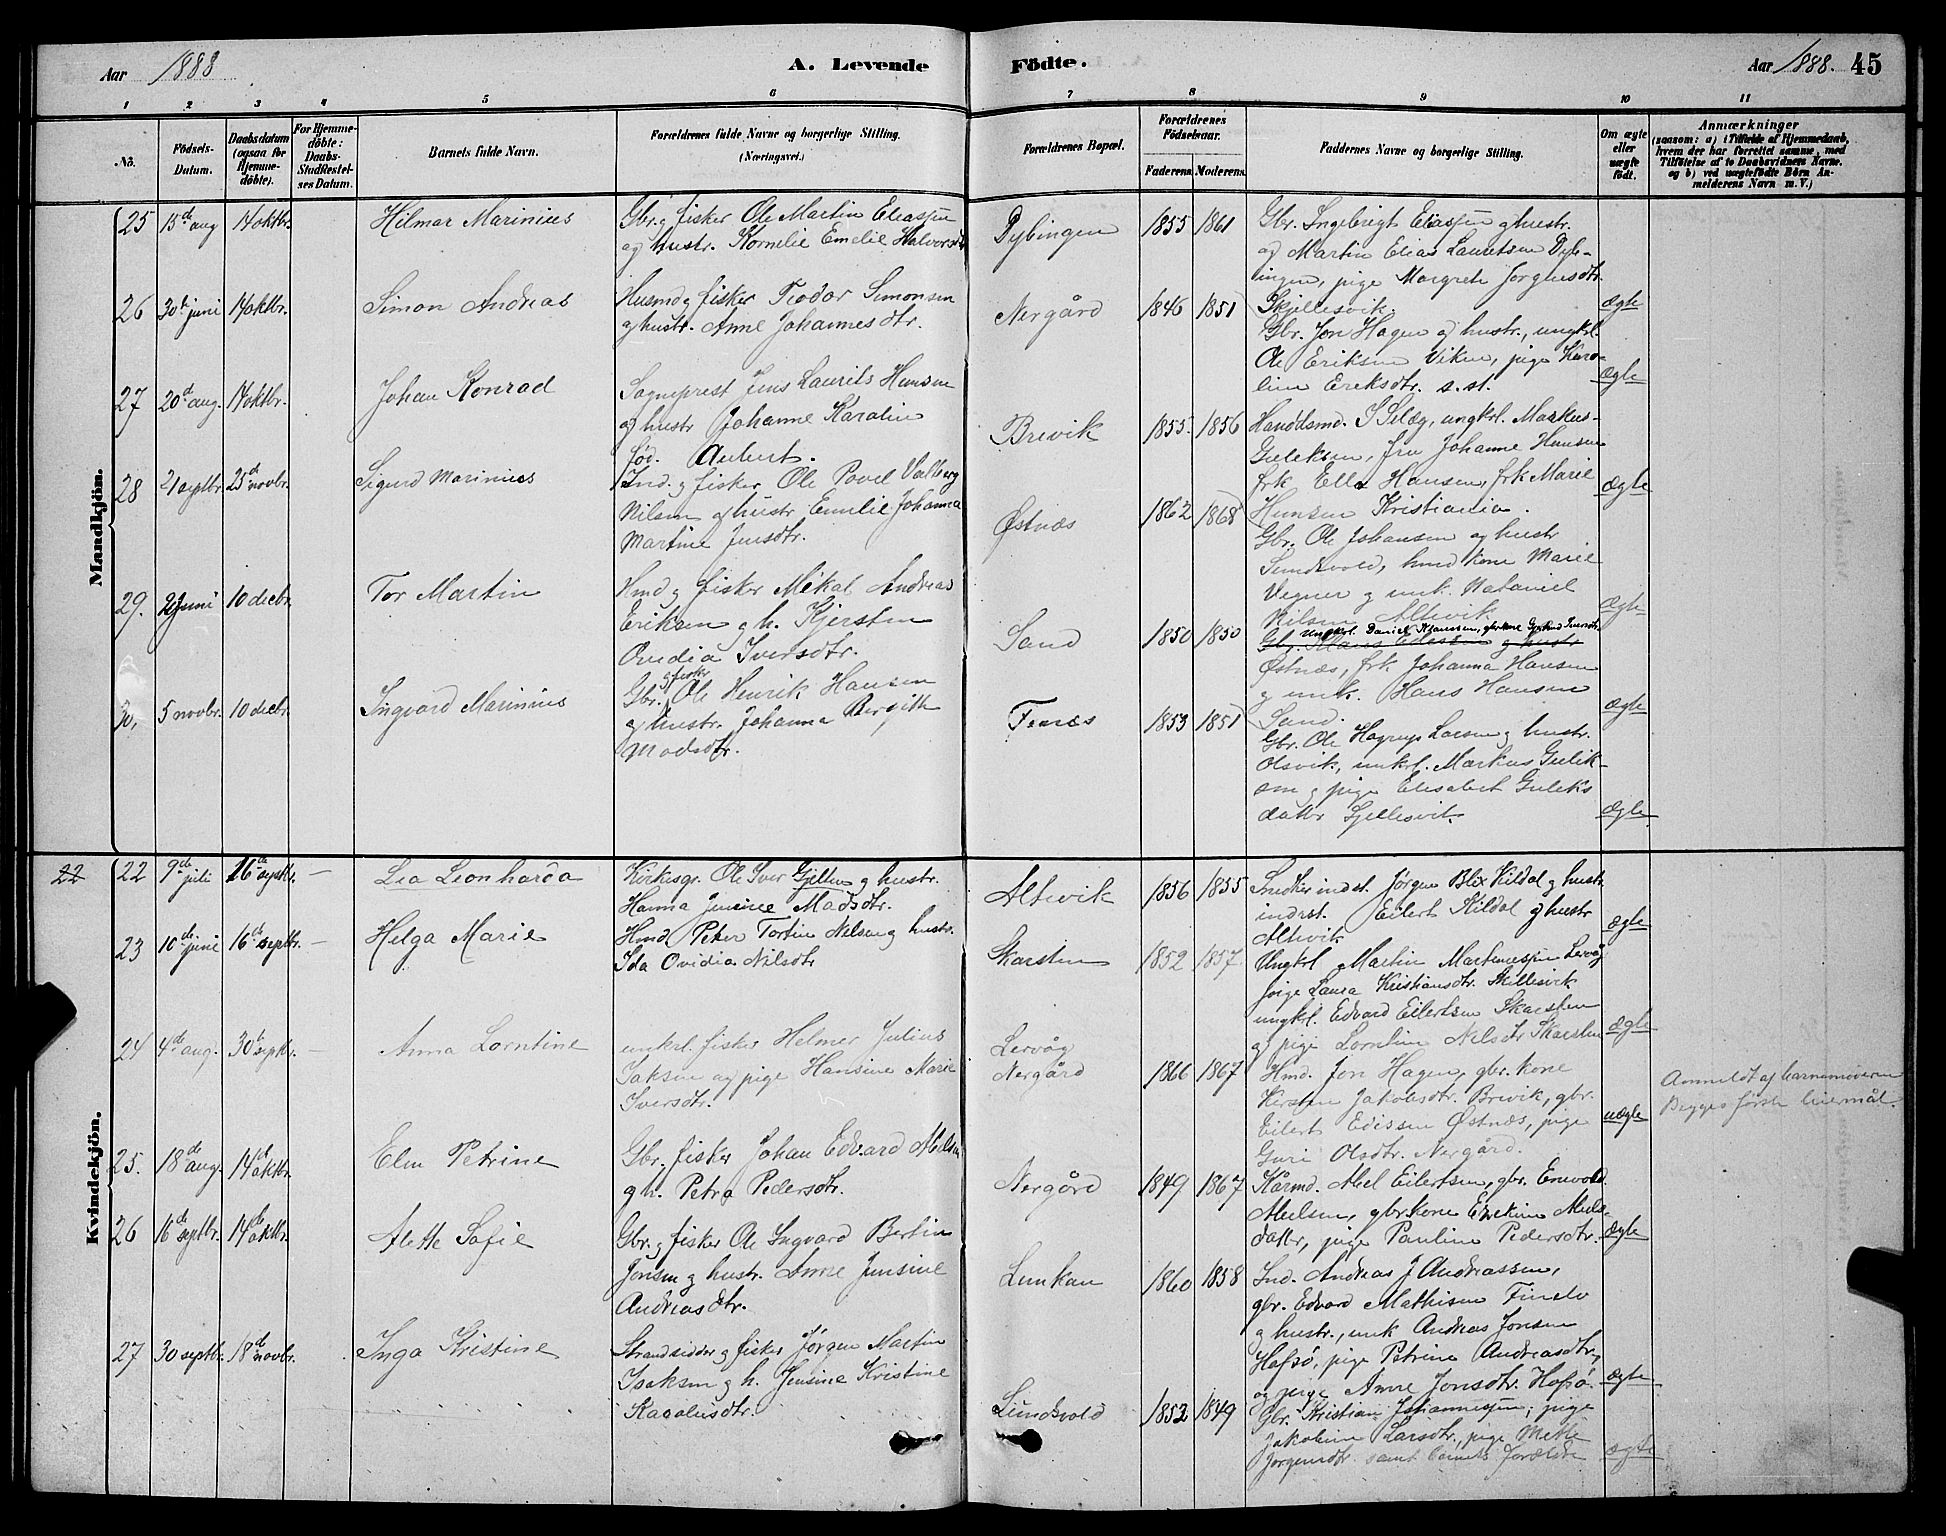 Aar 1888
A. Levende
Födte.
Aar 1888. 45
1 2 3 4 5 6 7 8 9 10 11
No.
Födsels-
Datum.
Daabsdatum
(ogsaa for
Hjemme-
döbte).
For Hjemme-
döbte:
Daabs-
Stadfæstel-
ses Datum.
Barnets fulde Navn.
Forældrenes fulde Navne og borgerlige Stilling.
(Næringsvei.)
Forældrenes Bopæl.
Forældrenes
Födselsaar.
Faderens. Moderens.
Faddernes Navne og borgerlige Stilling.
Om ægte
eller
uægte
födt.
Anmærkninger
(saasom: a) i Tilfælde af Hjemmedaab,
hvem der har forrettet samme, med
Tilföielse af to Daabsvidners Navne.
og b) ved uægtefödte Börn An-
melderens Navn m. V.)
Mandkjön.
25 15de aug 14 oktbr. Hilmar Marinius
Gbr. g fisker Ole Martin Eliassen
og hustr. Kornelie Emelie Halvorsdtr
Dybingen 1855 1861
Gbr. Ingebrigt Eliassen g hustr.
og Martin Elias Lauritsen Dyb-
ingen, pige Margrete Jørghusdtr.
Skjellesvik.
ægte
26 30de juni 14 oktbr. Simon Andreas
Husmd g fisker Teodor Simonsen
g hustr. Anne Johannesdtr.
Nergård 1846 1851
Gbr. Jon Hagen g hustr., ungkl.
Ole Eriksen Viken, pige Karo-
line Eriksdtr. s. st.
ægte
27 20de aug. 14 oktbr. Johan Konrad
Sogneprest Jens Laurits Hansen
og hustr Johanne Karoline
fød. Aubert.
Brevik 1855. 1856
Handelsmd. S Selæg, ungkrl. Markus
Guleksen, fru Johanne Hansen
frk Ella Hansen, frk Marie
Hansen Kristiania.
ægte
28 21 septbr. 25de novbr. Sigurd Marinius
Ind. g fisker Ole Povel Valberg
Nilsen g hustr Emilie Johanna
Martine Jensdtr.
Østnæs 1862 1868
Gbr. Ole Johansen og hustr
Sundsvold, hmd kone Marie
Vegner g umk. Nataniel
Nilsen Altevik
ægte
29. 21 juni 10 decbr. Tor Martin
Hmd g fisker Mikal Andreas
Eriksen g h. Kjersten
Ovidia Iversdtr.
Sand 1850 1850
Ungkrl. Daniel Klaussen, gbrkone Gjertrud Iversdtr.
Østnæs, frk. Johanna Hansen
g umk. Hans Hansen
Sand.
ægte
30, 5 novbr. 10 decbr. Ingvard Marinius
g fisker
Gbr. Ole Henrik Hansen
g hustr. Johanna Bergitte
Madsdtr.
Finnes 1853 1851
Gbr. Ole Hagrup Larsen g hustr.
Olsvik, umkrl. Markus Gulik-
sen g pige Elisabet Guleks
datter Sjellesvik
ægte
Kvindekjön.
22 22 9de juli 16de septbr. — Lea Leonharda
Kirkesgr. Ole Iver Gjelten g hustr.
Hanna Jensine Madsdtr.
Altevik 1856 1855
Snedker indst. Jørgen Blix Kildal g hustr
inderst. Eilert Kildal g hustr
Altevik
ægte
23 10de juni 16de septbr. — Helga Marie
Hmd. Peter Tortin Nilsen g hustr.
Ida Ovidia Nilsdtr
Skarsten 1852 1857
Ungkrl Martin Martinussen Lervåg
pige Laura Kristiansdtr. Skillesvik
ungkrl. Edvard Eilertsen Skarsten
g pige Lorntine Nilsdtr Skarsten
ægte
24 4de aug. 30te septbr. — Anna Lorntine
umkrl. fisker Helmer Julius
Isaksen og pige Hansine Marie
Iversdtr.
Lervåg
Nergård 1866 1867
Hmd. Jon Hagen, gbr. kone
Kersten Jakobsdtr. Brevik, gbr.
Eilert Edissen Østnæs, pige
Guri Olsdtr. Nergård.
uægte
Anmeldt af barnemoderen
Begges første leiermål.
25. 18de aug. 14de oktbr. Elen Petrine
Gbr. fisker Johan Edvard Mielsen
g h. Petra Pedersdtr.
Nergård 1849 1867
Kårmd. Miel Eilertsen, gbr. Enevold
Mielsen, gbr. kone Ezekine Miels-
datter, pige Pauline Pedersdtr.
ægte
26 16de septbr. 14de oktbr. Alette Sofie
Gbr. g fisker Ole Ingvard Bertin
Jonsen g hustr. Anne Jensine
Andreasdtr.
Lunkan 1860 1858
Ind. Andreas J Andreassen,
gbr. Edvard Mathisen Finslv
g hustr., umk Andreas Jonsen
Hofsø, pige Petrine Andreasdtr,
og pige Anne Jonsdtr. Hofsø.
ægte
27 30 septbr. 18de novbr. Inga Kristine
Strandsidder g fisker Jørgen Martin
Isaksen g h. Jensine Kristine
Karolusdtr.
Sundsvold 1852 1849
Gbr. Kristian Johannessen, pige
Jakobine Larsdtr., pige Mette
Jørgensdtr. samt barnets forældre
ægte